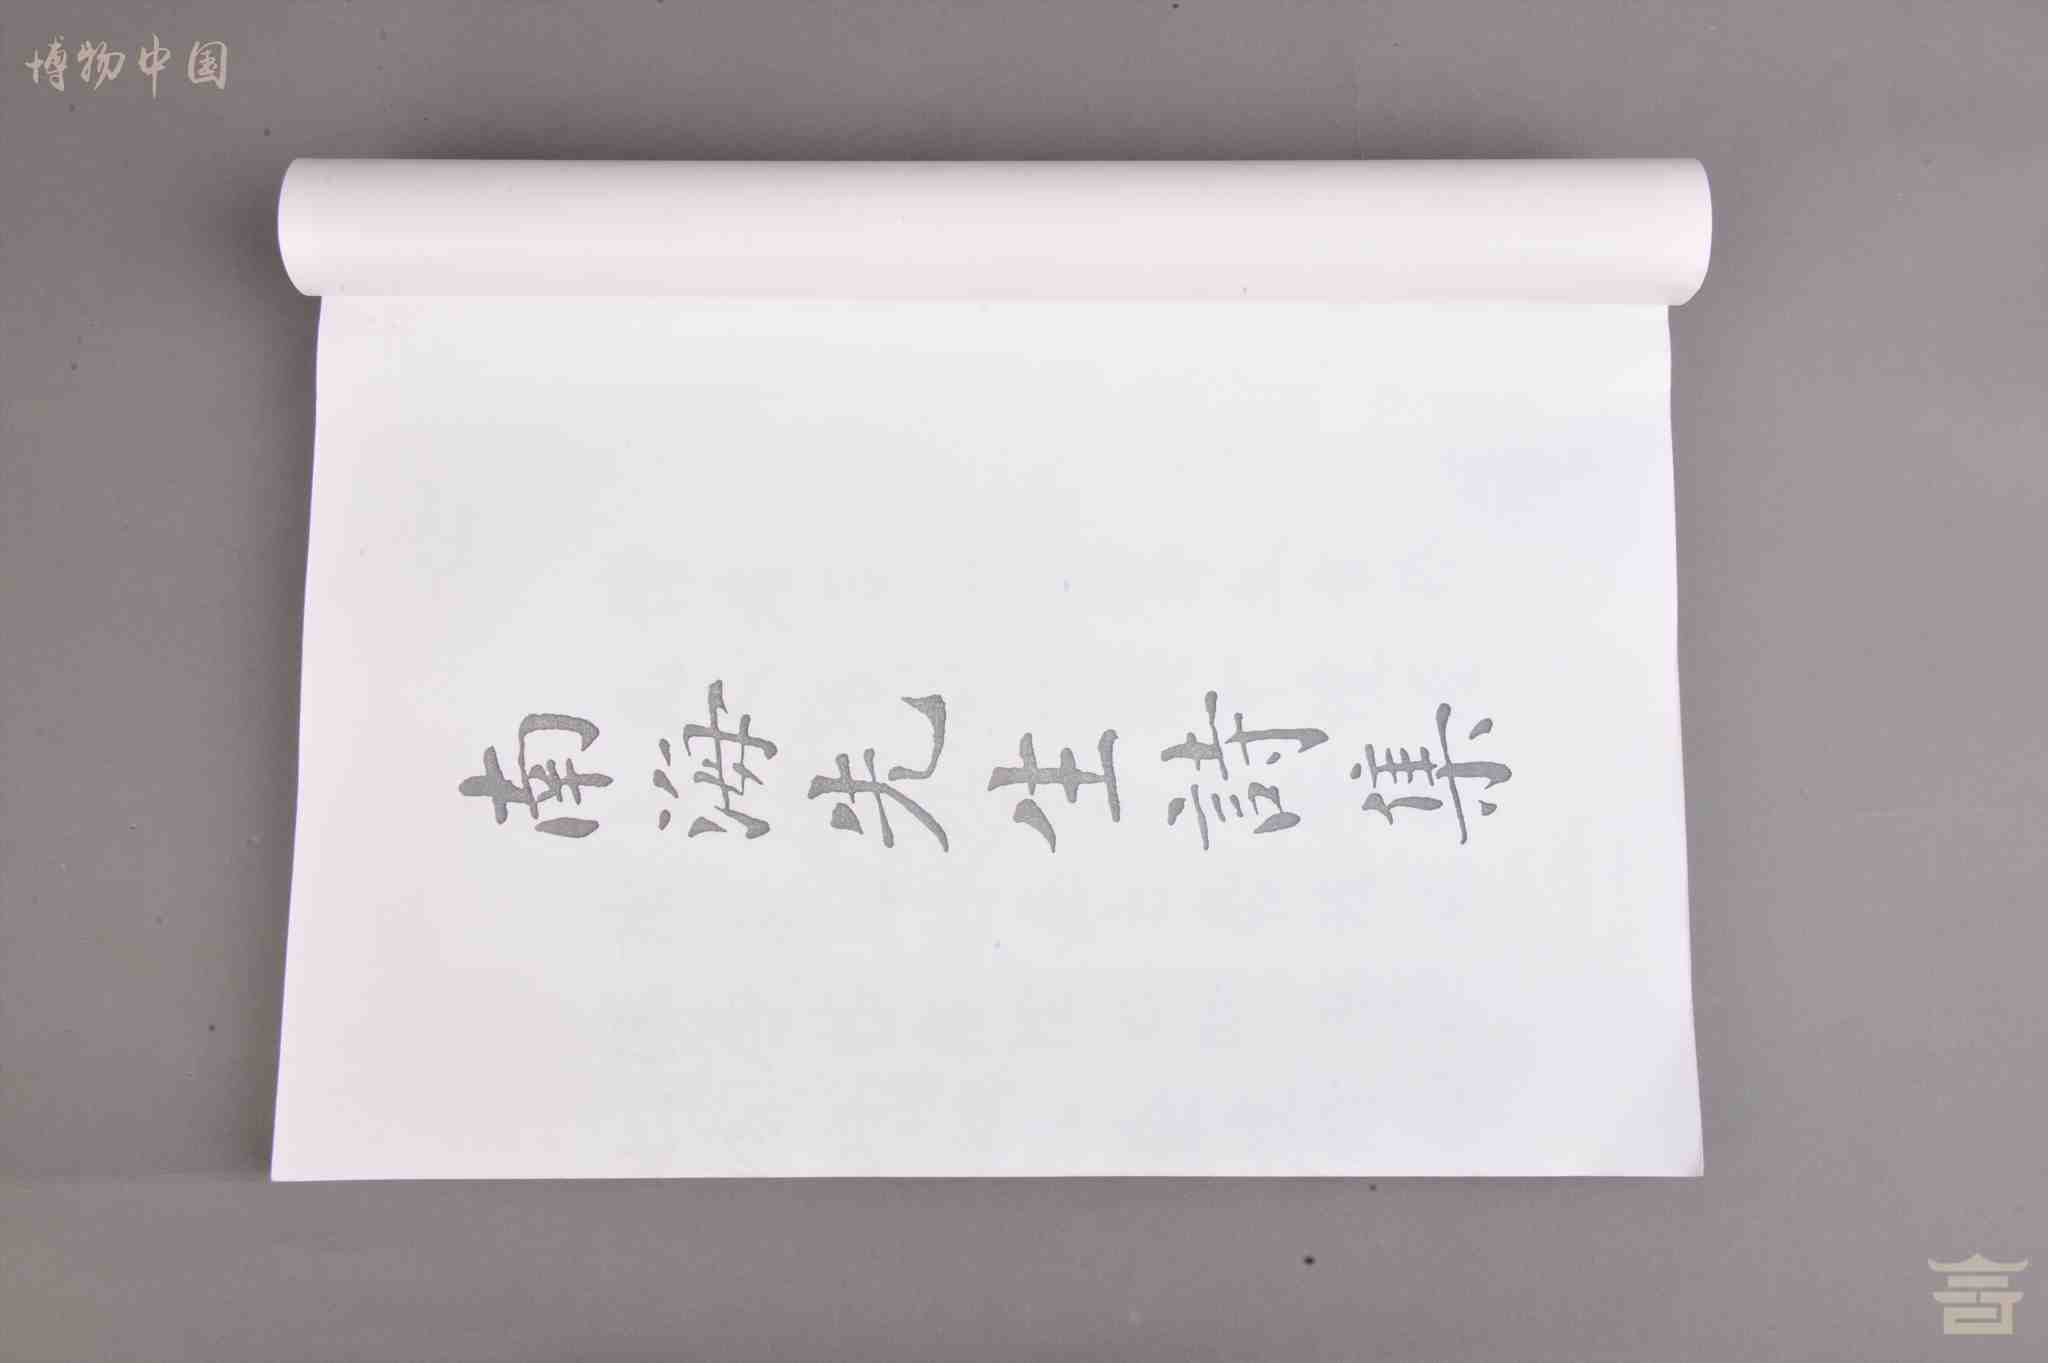 博物中国
南海先生詩集